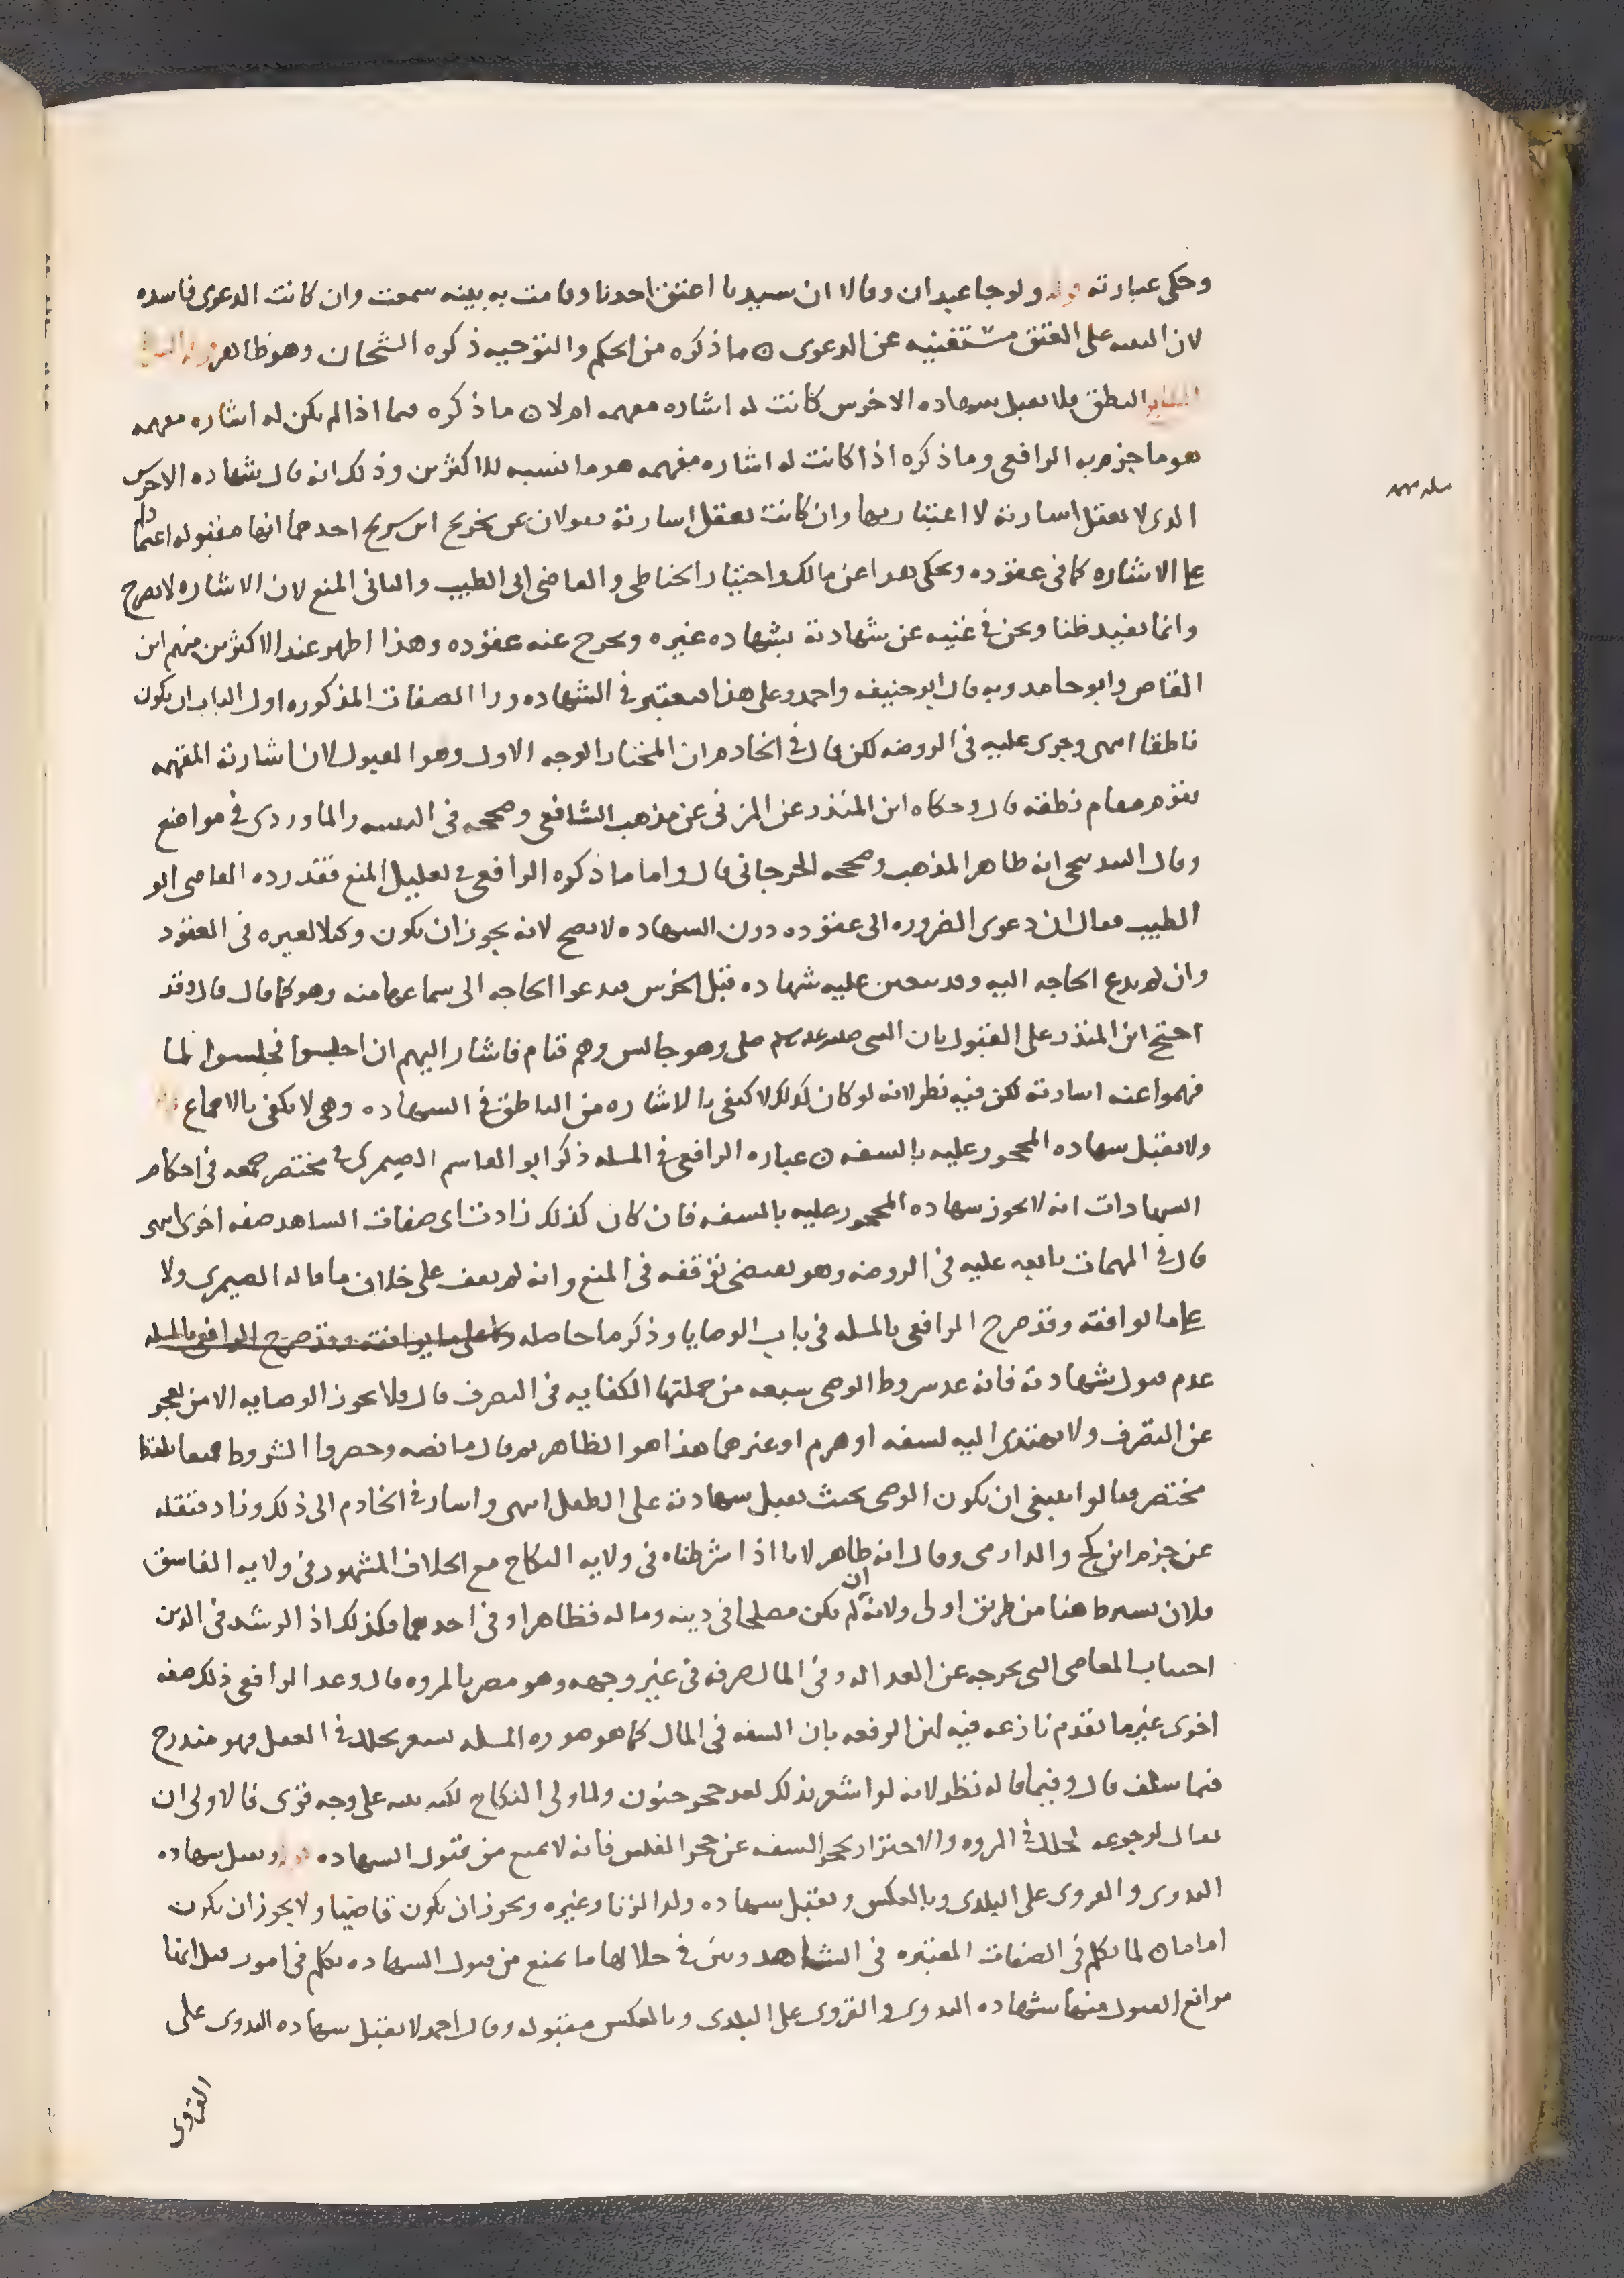 وحكى عبارته قوله ولو جا عبدان وقالا ان سيدنا اعتق احدنا وقامت به بينه سمعت وان كانت الدعوى فاسده
لان البينه على العتق مستغنيه عن الدعوى ٥ ما ذكره من الحكم والتوجيه ذكره الشيخان وهو ظاهر
النطق فلا يقبل شهاده الاخرس كانت له اشاره مفهمه ام لا ٥ ما ذكره فيما اذا لم يكن له اشاره مفهمه
هو ما جزم به الرافعى وما ذكره اذا كانت له اشاره مفهمه هو ما نسبه للاكثرين وذلك انه قال شهاده الاخرس
الذى لا يعقل اشارته لا اعتبار بها وان كانت يعقل اشارته فقولان عن تخريج ابن سريج احدهما انها مقبوله اعتمادا
على الاشاره كما فى عقوده ويحكى هذا عن مالك واختيار الحناطى والقاضى ابى الطيب والثانى المنع لان الاشاره لا تصرح
وانما تفيد ظنا ونحن فى غنيه عن شهادته بشهاده غيره ويخرج عنه عقوده وهذا اظهر عند الاكثرين منهم ابن
القاص وابو حامد وبه قال ابو حنيفه واحمد وعلى هذا فيعتبر فى الشهاده ورا الصفات المذكوره اول الباب ان يكون
ناطقا انتهى وجرى عليه فى الروضه لكن قال فى الخادم ان المختار الوجه الاول وهو القبول لان اشارته المفهمه
تقوم مقام نطقه قال وحكاه ابن المنذر عن المزنى عن مذهب الشافعى وصححه فى والماوردى فى مواضع
وقال البندنيجى انه ظاهر المذهب وصححه الجرجانى قال واما ما ذكره الرافعى فى تعليل المنع فقد رده القاضى ابو
الطيب فقال ان دعوى الضروره الى عقوده دون الشهاده لا يصح لانه يجوز ان يكون وكيلا لغيره فى العقود
وان لم يدع الحاجه اليه وقد يتعين عليه شهاده قبل الخرس فتدعوا الحاجه الى سماعها منه وهو كما قال قال وقد
احتج ابن المنذر على القبول بان النبى صلى الله عليه وسلم صلى وهو جالس وهم قيام فاشار اليهم ان اجلسوا فجلسوا لما
فهموا عنه اشارته لكن فيه نظر لانه لو كان كذلك لاكتفى بالاشاره من الناطق فى الشهاده وهى لا تكفى بالاجماع
ولا يقبل شهاده المحجور عليه بالسفه ٥ عباره الرافعى فى المسله ذكر ابو القاسم الصيمرى فى مختصر جمعه فى احكام
الشهادات انه لا يجوز شهاده المحجور عليه بالسفه فان كان كذلك زادت اى صفات الشاهد صفه اخرى انتهى
قال فى المهمات تابعه عليه فى الروضه وهو يقتضى توقفه فى المنع وانه لم يقف على خلاف ما قاله الصيمرى ولا
على ما يوافقه وقد صرح الرافعى بالمسله فى باب الوصايا وذكر ما حاصله ولا على ما يوافقه وقد صرح الرافعى بالمسله
عدم قبول شهادته فانه عد شروط الوصى سبعه من جملتها الكفايه فى التصرف قال فلا يجوز الوصايه الا من يعجز
عن التصرف ولا يهتدى اليه لسفه او هرم او غيرهما هذا هو الظاهر ثم قال ما نصه وحصروا الشروط جميعا بلفظ
مختصر فقالوا ينبغى ان يكون الوصى بحيث يقبل شهادته على الطفل انتهى واشار فى الخادم الى ذلك وزاد فنقله
عن جزم ابن كج والدارمى وقال انه ظاهر لانا اذا شرطناه فى ولايه النكاح مع الخلاف المشهور فى ولايه الفاسق
فلان يشترط هنا من طريق اولى ولانه ان لم يكن مصلحا فى دينه وماله فظاهر او فى احدهما فكذلك اذ الرشد فى الدين
اجتناب المعاصى التى تخرجه عن العداله وفى المال صرفه فى غير وجهه وهو مضر بالمروه قال وعد الرافعى ذلك صفه
اخرى غير ما تقدم نازعه فيه ابن الرفعه بان السفه فى المال كما هو صوره المسله يشعر بخلل فى العقل فهو مندرج
فيما سلف قال وفيما قاله نظر لانه لو اشعر بذلك لعد حجر جنون ولما ولى النكاح لكنه يليه على وجه قوى فالاولى ان
يقال لرجوعه لخلل فى المروه والاحتراز بحجر السفه عن حجر الفلس فانه لا يمنع من قبول الشهاده قوله ويقبل شهاده
البدوى والقروى على البلدى وبالعكس ويقبل شهاده ولد الزنا وغيره ويجوز ان يكون قاضيا ولا يجوز ان يكون
اماما ٥ لما تكلم فى الصفات المعتبره فى الشاهد وبين فى خلالها ما يمنع من قبول الشهاده تكلم فى امور قيل انها
موانع القبول فمنها شهاده البدوى والقروى على البلدى وبالعكس مقبوله وقال احمد لا يقبل شهاده البدوى على
القروى